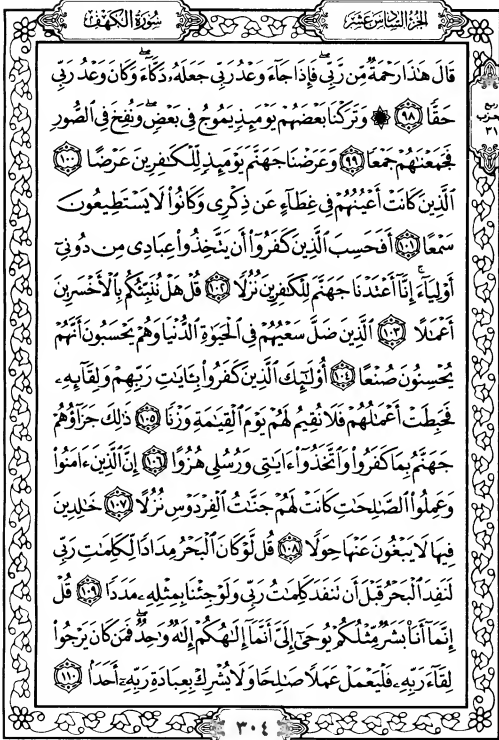 الجزء السادس عشر
سورة الكهف
ربع
حزب
٣١
قَالَ هَٰذَا رَحْمَةٌ مِّن رَّبِّي ۖ فَإِذَا جَاءَ وَعْدُ رَبِّي جَعَلَهُ دَكَّاءَ ۖ وَكَانَ وَعْدُ رَبِّي
حَقًّا ٩٨ ۞ وَتَرَكْنَا بَعْضَهُمْ يَوْمَئِذٍ يَمُوجُ فِي بَعْضٍ ۖ وَنُفِخَ فِي الصُّورِ
فَجَمَعْنَٰهُمْ جَمْعًا ٩٩ وَعَرَضْنَا جَهَنَّمَ يَوْمَئِذٍ لِّلْكَٰفِرِينَ عَرْضًا ١٠٠
الَّذِينَ كَانَتْ أَعْيُنُهُمْ فِي غِطَاءٍ عَن ذِكْرِي وَكَانُوا لَا يَسْتَطِيعُونَ
سَمْعًا ١٠١ أَفَحَسِبَ الَّذِينَ كَفَرُوا أَن يَتَّخِذُوا عِبَادِي مِن دُونِي
أَوْلِيَاءَ ۚ إِنَّا أَعْتَدْنَا جَهَنَّمَ لِلْكَٰفِرِينَ نُزُلًا ١٠٢ قُلْ هَلْ نُنَبِّئُكُم بِالْأَخْسَرِينَ
أَعْمَٰلًا ١٠٣ الَّذِينَ ضَلَّ سَعْيُهُمْ فِي الْحَيَوٰةِ الدُّنْيَا وَهُمْ يَحْسَبُونَ أَنَّهُمْ
يُحْسِنُونَ صُنْعًا ١٠٤ أُولَٰئِكَ الَّذِينَ كَفَرُوا بِـَٔايَٰتِ رَبِّهِمْ وَلِقَائِهِۦ
فَحَبِطَتْ أَعْمَٰلُهُمْ فَلَا نُقِيمُ لَهُمْ يَوْمَ الْقِيَٰمَةِ وَزْنًا ١٠٥ ذَٰلِكَ جَزَاؤُهُمْ
جَهَنَّمُ بِمَا كَفَرُوا وَاتَّخَذُوا ءَايَٰتِي وَرُسُلِي هُزُوًا ١٠٦ إِنَّ الَّذِينَ ءَامَنُوا
وَعَمِلُوا الصَّٰلِحَٰتِ كَانَتْ لَهُمْ جَنَّٰتُ الْفِرْدَوْسِ نُزُلًا ١٠٧ خَٰلِدِينَ
فِيهَا لَا يَبْغُونَ عَنْهَا حِوَلًا ١٠٨ قُل لَّوْ كَانَ الْبَحْرُ مِدَادًا لِّكَلِمَٰتِ رَبِّي
لَنَفِدَ الْبَحْرُ قَبْلَ أَن تَنفَدَ كَلِمَٰتُ رَبِّي وَلَوْ جِئْنَا بِمِثْلِهِۦ مَدَدًا ١٠٩ قُلْ
إِنَّمَا أَنَا۠ بَشَرٌ مِّثْلُكُمْ يُوحَىٰ إِلَيَّ أَنَّمَا إِلَٰهُكُمْ إِلَٰهٌ وَٰحِدٌ ۖ فَمَن كَانَ يَرْجُوا
لِقَاءَ رَبِّهِۦ فَلْيَعْمَلْ عَمَلًا صَٰلِحًا وَلَا يُشْرِكْ بِعِبَادَةِ رَبِّهِۦ أَحَدًا ١١٠
٣٠٤